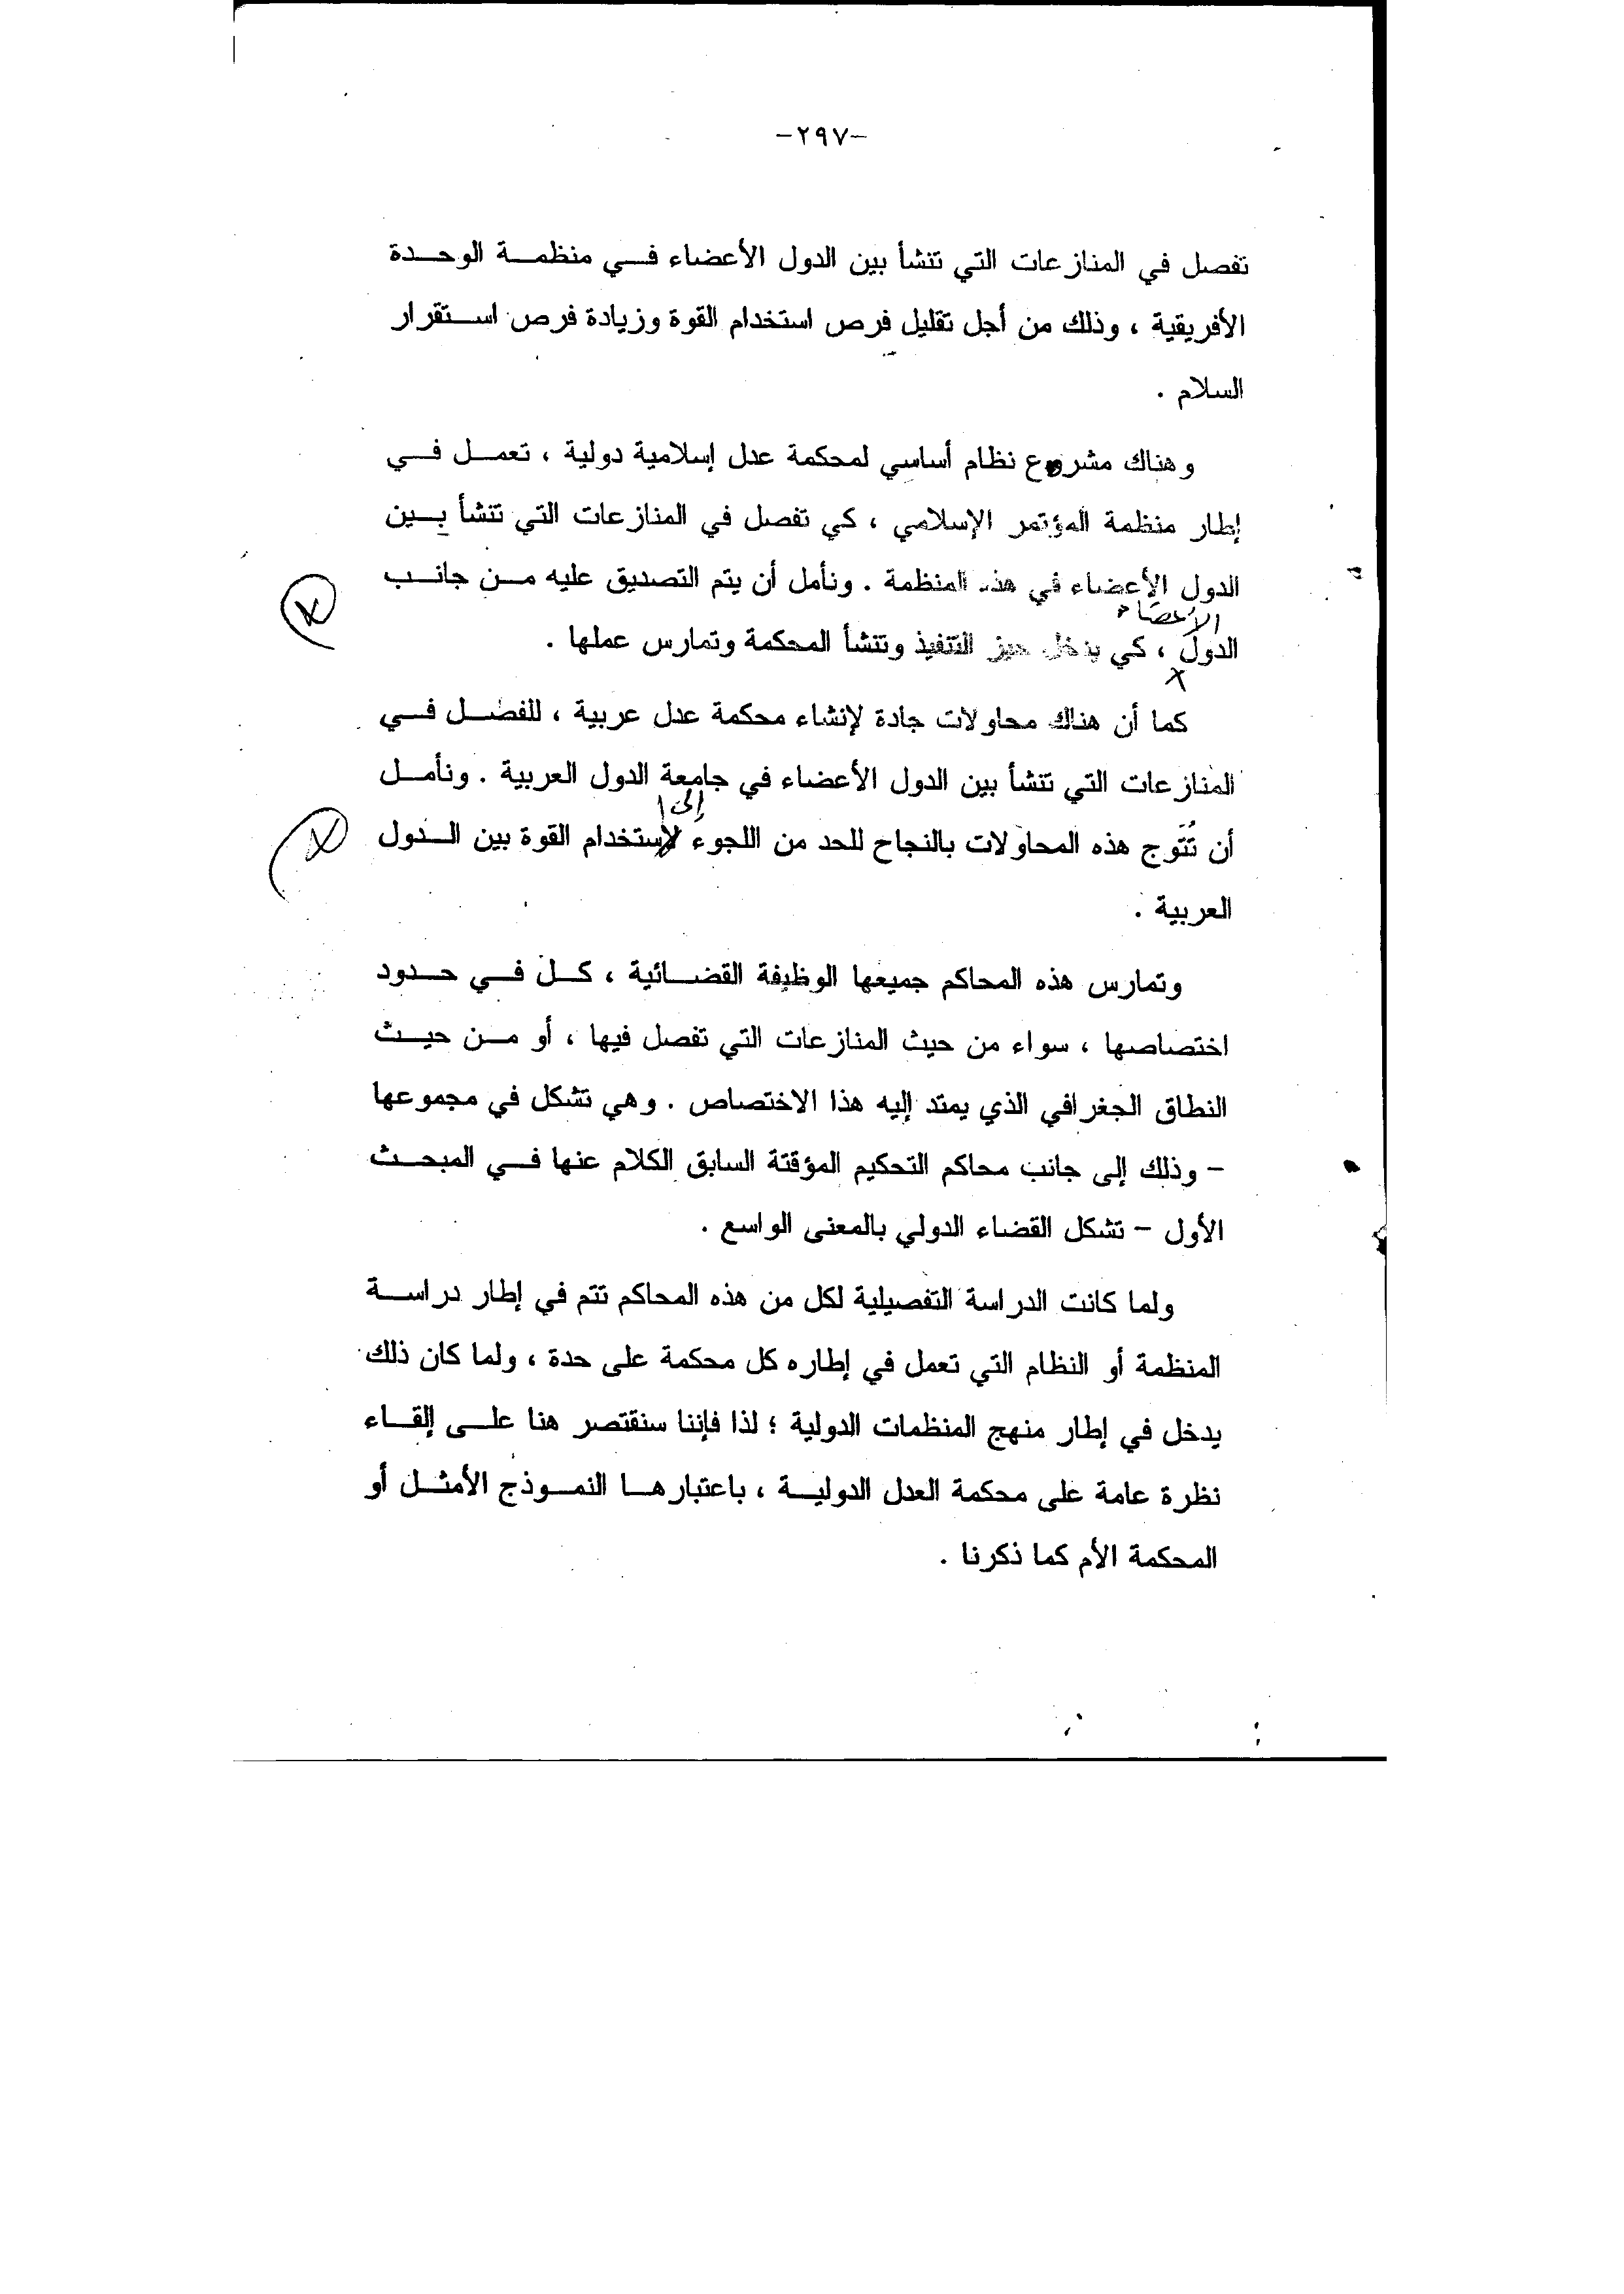 -٢٩٧-
تفصل في المنازعات التي تنشأ بين الدول الأعضاء فــي منظمــة الوحــدة
الأفريقية ، وذلك من أجل تقليل فرص استخدام القوة وزيادة فرص اســتقرار
السلام .
وهناك مشروع نظام أساسي لمحكمة عدل إسلامية دولية ، تعمــل فــي
إطار منظمة المؤتمر الإسلامي ، كي تفصل في المنازعات التي تنشأ بــين
الدول الأعضاء في هذه المنظمة . ونأمل أن يتم التصديق عليه مــن جانــب
الأعضاء
الدول ، كي يدخل حيز التنفيذ وتنشأ المحكمة وتمارس عملها .
كما أن هناك محاولات جادة لإنشاء محكمة عدل عربية ، للفصــل فــي
المنازعات التي تنشأ بين الدول الأعضاء في جامعة الدول العربية . ونأمــل
إلى ا
أن تُتَوج هذه المحاولات بالنجاح للحد من اللجوء لإستخدام القوة بين الــدول
العربية .
وتمارس هذه المحاكم جميعها الوظيفة القضــائية ، كــل فــي حــدود
اختصاصها ، سواء من حيث المنازعات التي تفصل فيها ، أو مــن حيــث
النطاق الجغرافي الذي يمتد إليه هذا الاختصاص . وهي تشكل في مجموعها
- وذلك إلى جانب محاكم التحكيم المؤقتة السابق الكلام عنها فــي المبحــث
الأول - تشكل القضاء الدولي بالمعنى الواسع .
ولما كانت الدراسة التفصيلية لكل من هذه المحاكم تتم في إطار دراســة
المنظمة أو النظام التي تعمل في إطاره كل محكمة على حدة ، ولما كان ذلك
يدخل في إطار منهج المنظمات الدولية ؛ لذا فإننا سنقتصر هنا علــى إلقــاء
نظرة عامة على محكمة العدل الدوليــة ، باعتبارهــا النمــوذج الأمثــل أو
المحكمة الأم كما ذكرنا .